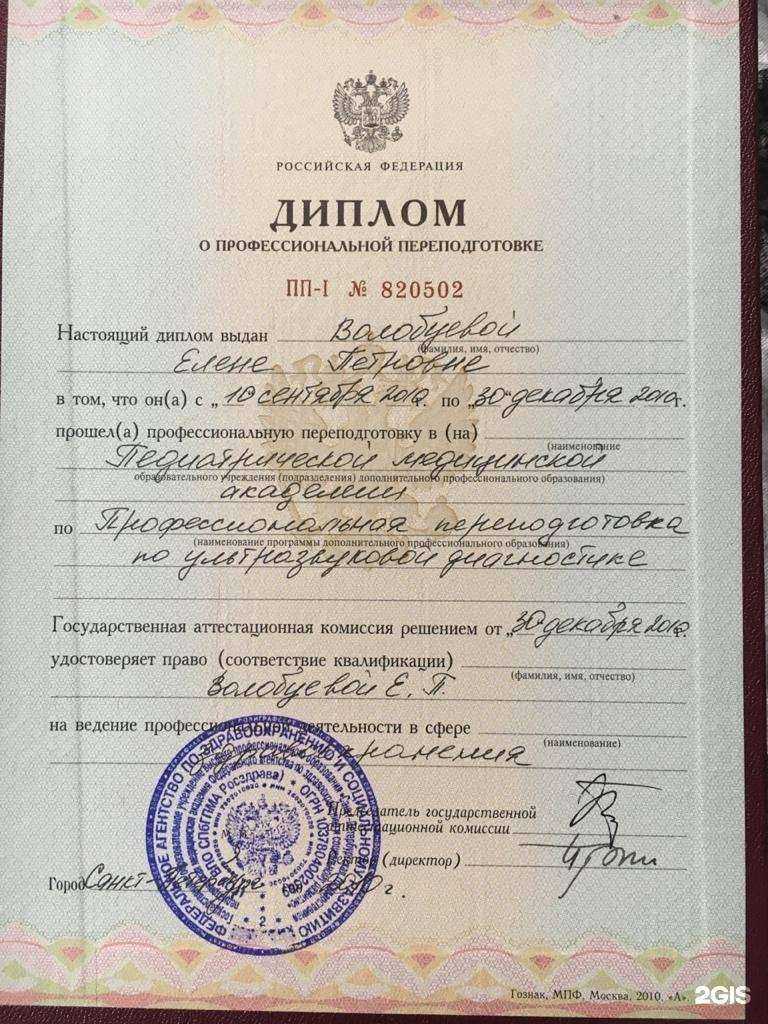 РОССИЙСКАЯ ФЕДЕРАЦИЯ
ДИПЛОМ
О ПРОФЕССИОНАЛЬНОЙ ПЕРЕПОДГОТОВКЕ
ПП-I № 820502
Настоящий диплом выдан Волобуевой
(фамилия, имя, отчество)
Елене Петровне
в том, что он(а) с „10 сентября 2010 г. по „30“ декабря 2010 г.
прошел(а) профессиональную переподготовку в (на)
(наименование
Педиатрической медицинской
образовательного учреждения (подразделения) дополнительного профессионального образования)
академии
по Профессиональная переподготовка
(наименование программы дополнительного профессионального образования)
по ультразвуковой диагностике
Государственная аттестационная комиссия решением от „30 декабря 2010
удостоверяет право (соответствие квалификации)
(фамилия, имя, отчество)
Волобуевой Е. П.
на ведение профессиональной деятельности в сфере
(наименование)
здравоохранения
Председатель государственной
аттестационной комиссии
Ректор (директор)
Город Санкт-Петербург 2010 г.
ФЕДЕРАЛЬНОЕ АГЕНТСТВО ПО ЗДРАВООХРАНЕНИЮ И СОЦИАЛЬНОМУ РАЗВИТИЮ
СПбГПМА Росздрава)
2
Гознак, МПФ, Москва, 2010, «А».
2GIS